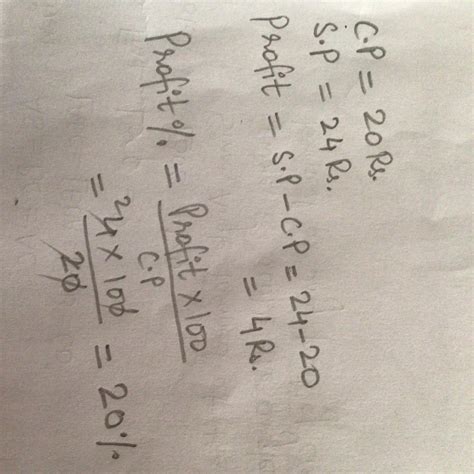 C.P = 20 Rs.
S.P = 24 Rs.
Profit = S.P - C.P = 24 - 20
= 4 Rs.
Profit % = Profit × 100
C.P
= 24 × 100 = 20%
20